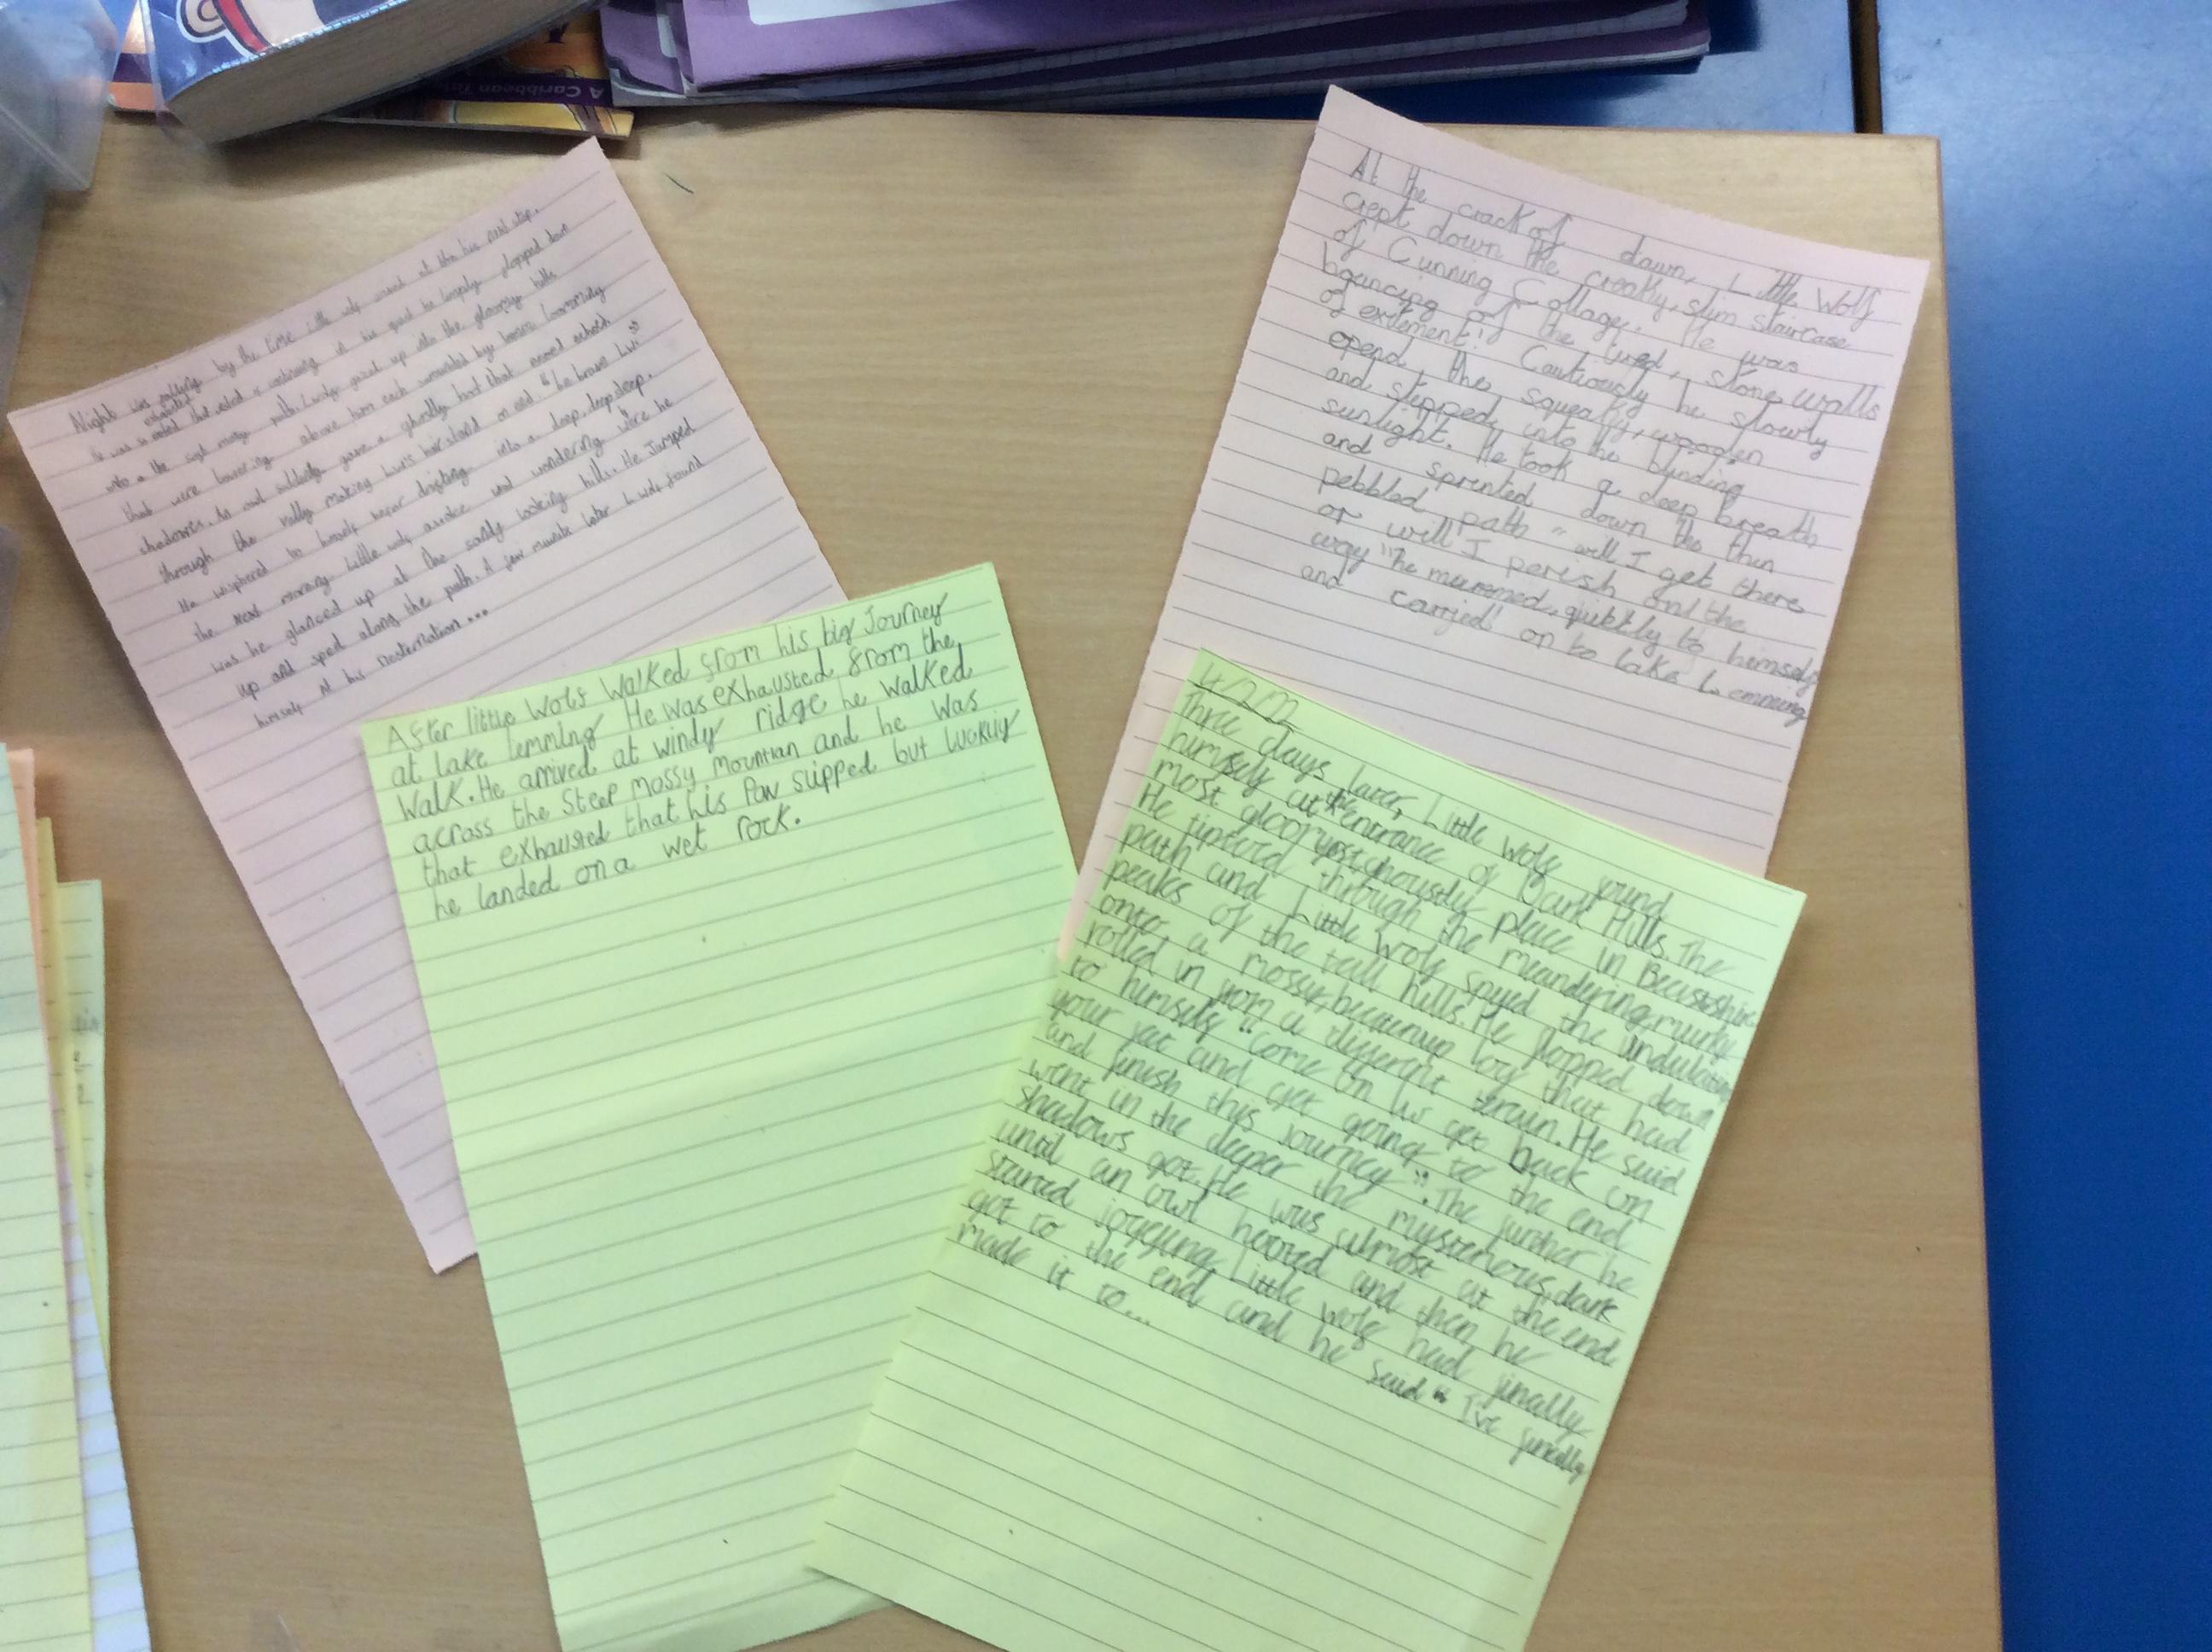 A Caribbean
Night was falling by the time little wolf
he was so exhausted that
onto a the soft mossy path. Lwolfy gazed up into the gloomy hills
that were towering above him each surrounded by looming
shadows. An owl suddenly gave a ghostly hoot that echoed
through the vally making Lwfs hair stand on end. "be brave Lwf"
He wispered to himself befor drifting into a deep, deep sleep.
the next morning. Little wolf awoke and wondering were he
was he glanced up at the sandy looking hills. He Jumped
up and sped along the path. A few minute later L wolf found
himself at his
After little Wolf Walked from his big Journey
at lake lemming He was exhausted from the
Walk. He arrived at windy ridge he walked
across the Steep mossy mountian and he was
that exhausted that his Paw slipped but luckily
he landed on a wet rock.
At the crack of dawn, Little Wolf
crept down the creaky, slim staircase
of Cunning Collage. He was
bouncing of the tured, stone walls
of exitement! Cautiously he slowly
opend the squeaky, wooden
and stepped into the blinding
sunlight. He took a deep breath
and sprinted down the thin
pebbled path "will I get there
or will I perish on the
way" he murmed, quiktly to himself
and carried on to lake Lemming
4/2/22
Three days later, Little wolf found
himself at the entrance of Dark Hills. The
most gloomy, ghoustly place in Beastshire
He tiptoed through the meandering, murky
path and Little Wolf spyed the undulating
peaks of the tall hills. He flopped down
onto a mossy, beatenup log that had
rolled in from a different train. He said
to himself "Come on lw get back on
your feet and get going to the end
and finish this Journey". The further he
went in the deeper the mysterious, dark
shadows got. He was almost at the end
until an owl hooted and then he
started jogging. Little wolf had finally
got to the end and he said "I've finally
made it to...